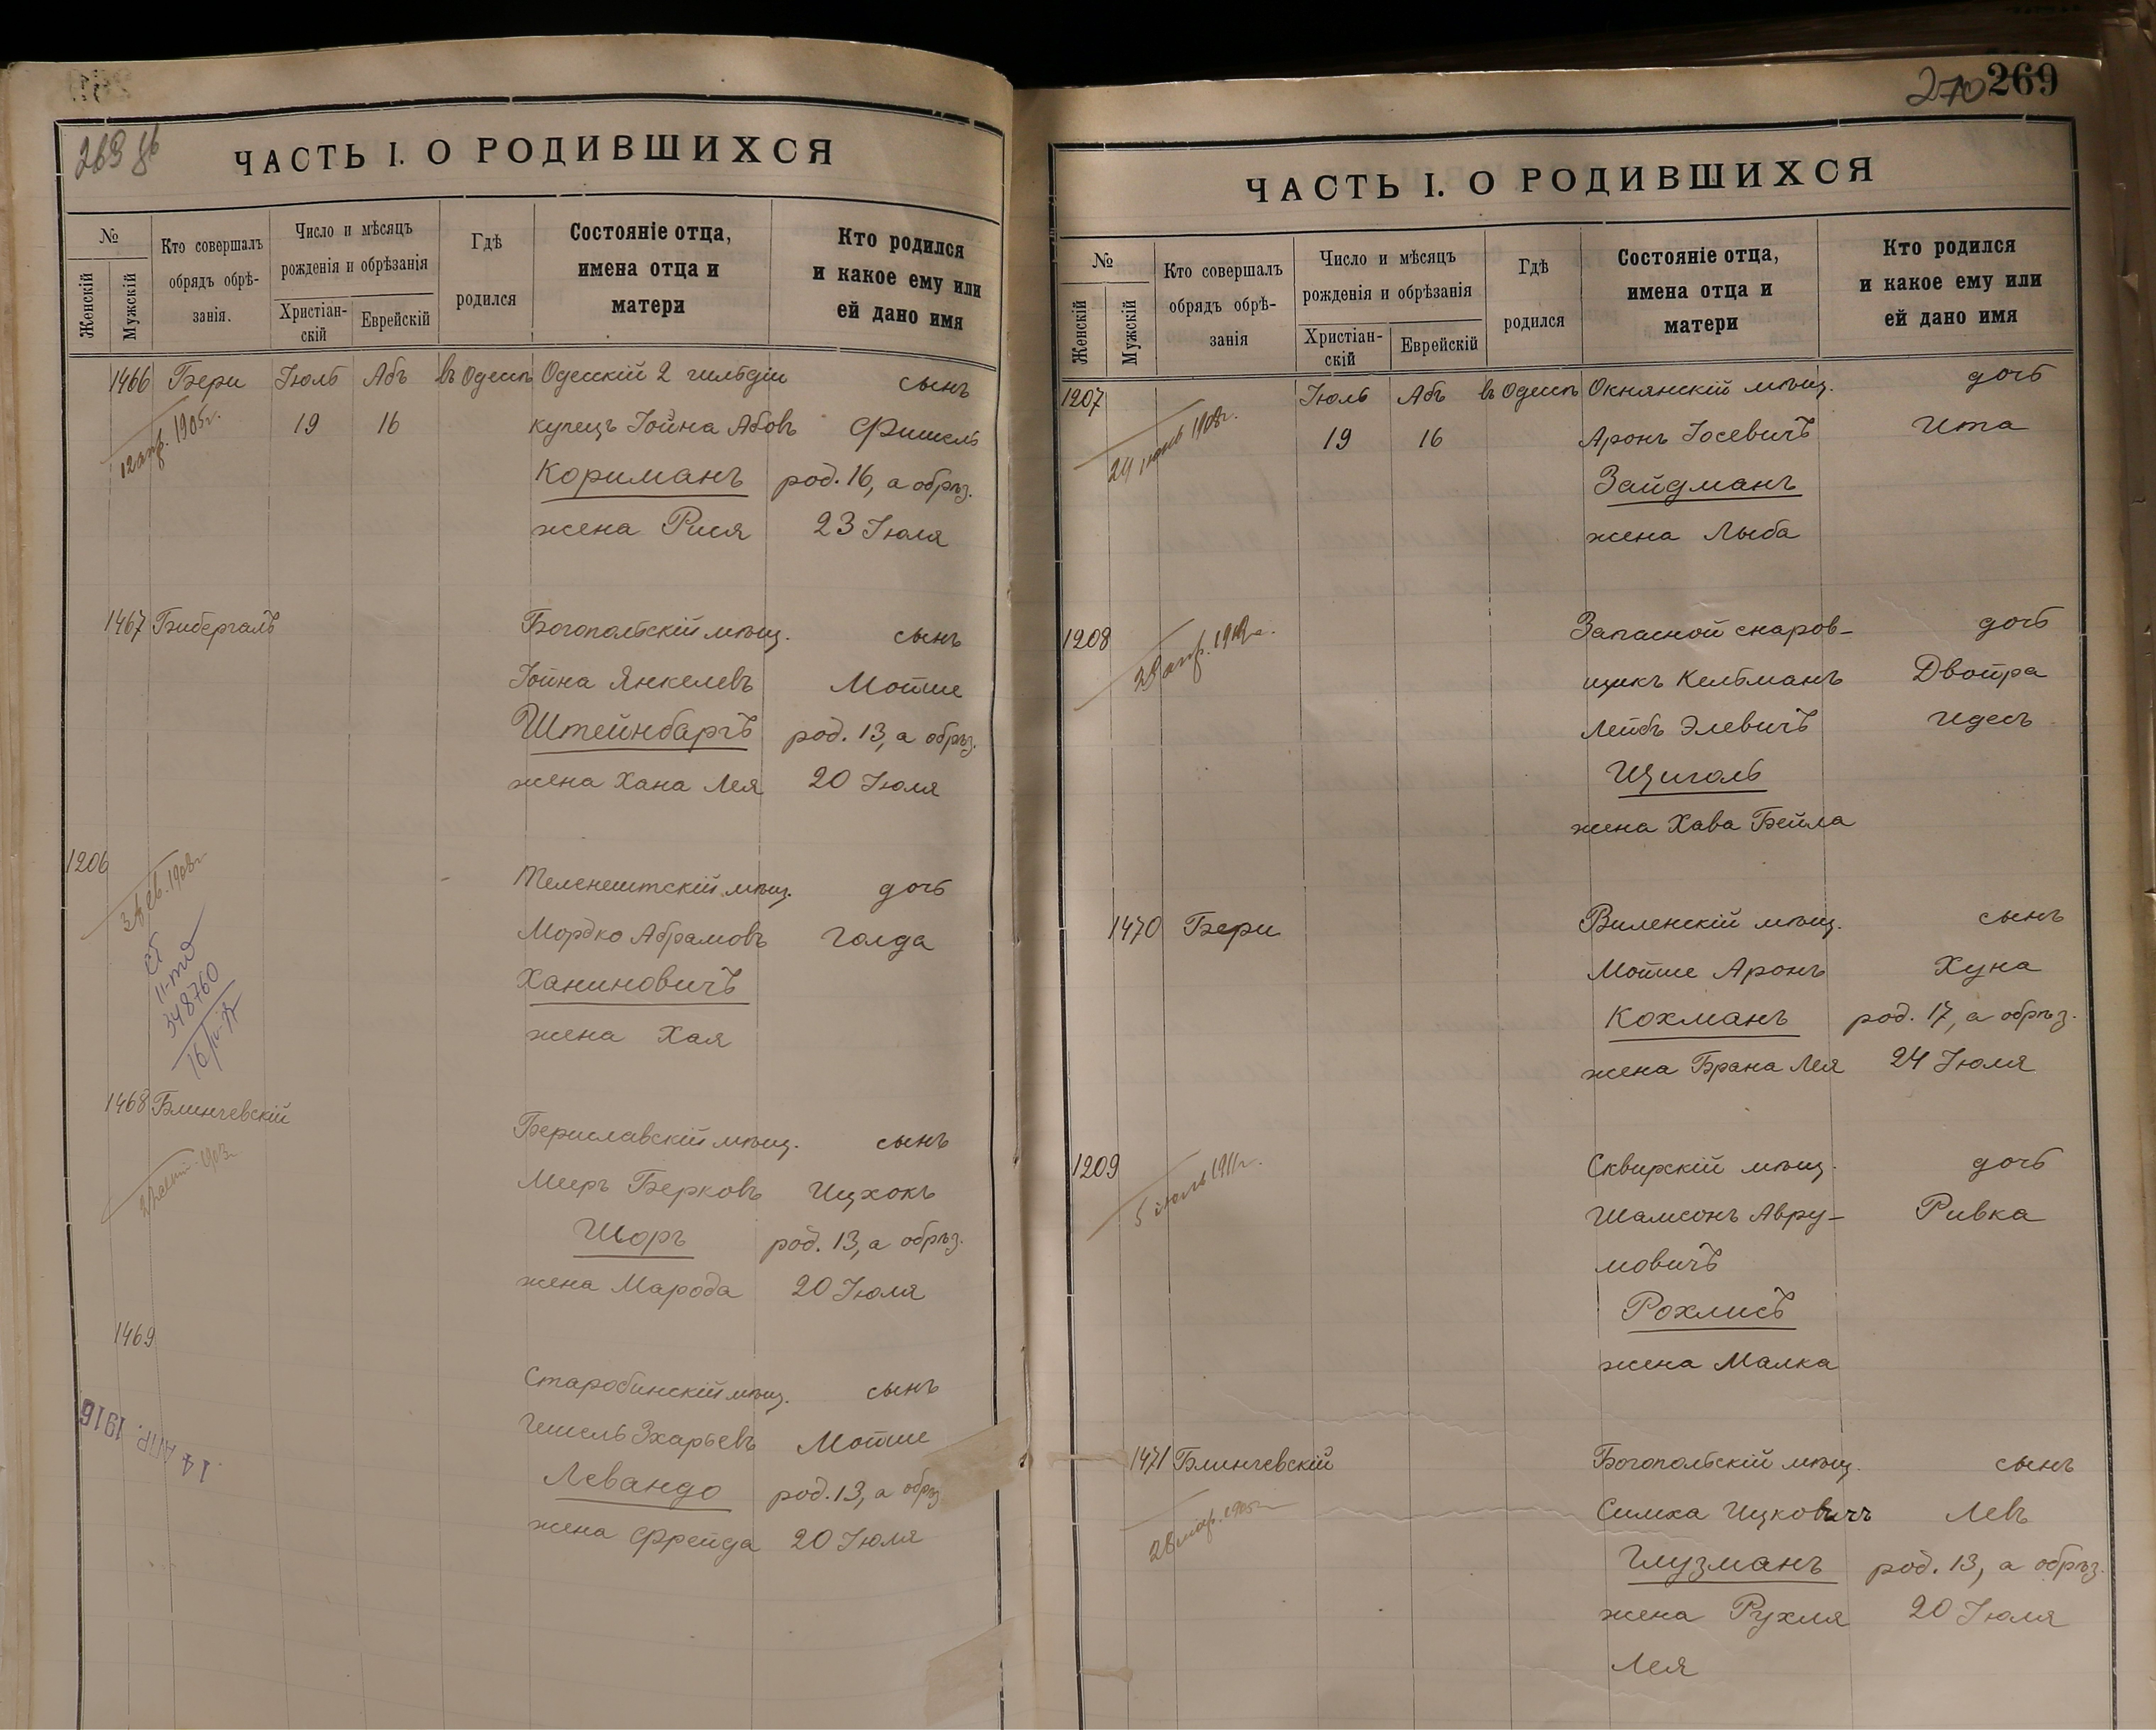 263 об
ЧАСТЬ I. О РОДИВШИХСЯ
№
Женскій
Мужскій
Кто совершалъ
обрядъ обрѣ-
занія.
Число и мѣсяцъ
рожденія и обрѣзанія
Христіан-
скій
Еврейскій
Гдѣ
родился
Состояніе отца,
имена отца и
матери
Кто родился
и какое ему или
ей дано имя
1466 Бери Іюль Абъ въ Одессѣ Одесскій 2 гильдіи сынъ
12 апр. 1905г. 19 16 купецъ Іойна Абовъ Фишель
Кориманъ род. 16, а обрѣз.
жена Рися 23 Іюля
1467 Бибергалъ Богопольскій мѣщ. сынъ
Іойна Янкелевъ Мойше
Штейнбаргъ род. 13, а обрѣз.
жена Хана Лея 20 Іюля
1206
3 фев. 1908г.
Теленештскій мѣщ. дочь
Мордко Абрамовъ Голда
Ханиновичъ
жена Хая
348760
1468 Блинчевскій Бериславскій мѣщ. сынъ
Меиръ Берковъ Ицхокъ
Шоръ род. 13, а обрѣз.
жена Марода 20 Іюля
1469
Старобинскій мѣщ. сынъ
Гишель Зхарьевъ Мойше
Левандо род. 13, а обрѣз
жена Фрейда 20 Іюля
14 АПР. 1916
270 269
ЧАСТЬ I. О РОДИВШИХСЯ
№
Женскій
Мужскій
Кто совершалъ
обрядъ обрѣ-
занія
Число и мѣсяцъ
рожденія и обрѣзанія
Христіан-
скій
Еврейскій
Гдѣ
родился
Состояніе отца,
имена отца и
матери
Кто родился
и какое ему или
ей дано имя
1207 Іюль Абъ въ Одессѣ Окнянскій мѣщ. дочь
24 1908г. 19 16 Аронъ Іосевичъ Ита
Зайдманъ
жена Лыба
1208 Запасной снаров-
щикъ Кельманъ
дочь
Двойра
апр. Лейбъ Элевичъ Идесъ
Щиголь
жена Хава Бейла
1470 Бери Виленскій мѣщ. сынъ
Мойше Аронъ Хуна
Кохманъ род. 17, а обрѣз.
жена Брана Лея 24 Іюля
1209 Сквирскій мѣщ. дочь
5 іюль 1911г. Шамсонъ Авру-
мовичъ
Ривка
Рохлисъ
жена Малка
1471 Блинчевскій Богопольскій мѣщ. сынъ
28 мар. 1905г. Симха Ицковичъ Левъ
Глузманъ род. 13, а обрѣз.
жена Рухля 20 Іюля
Лея